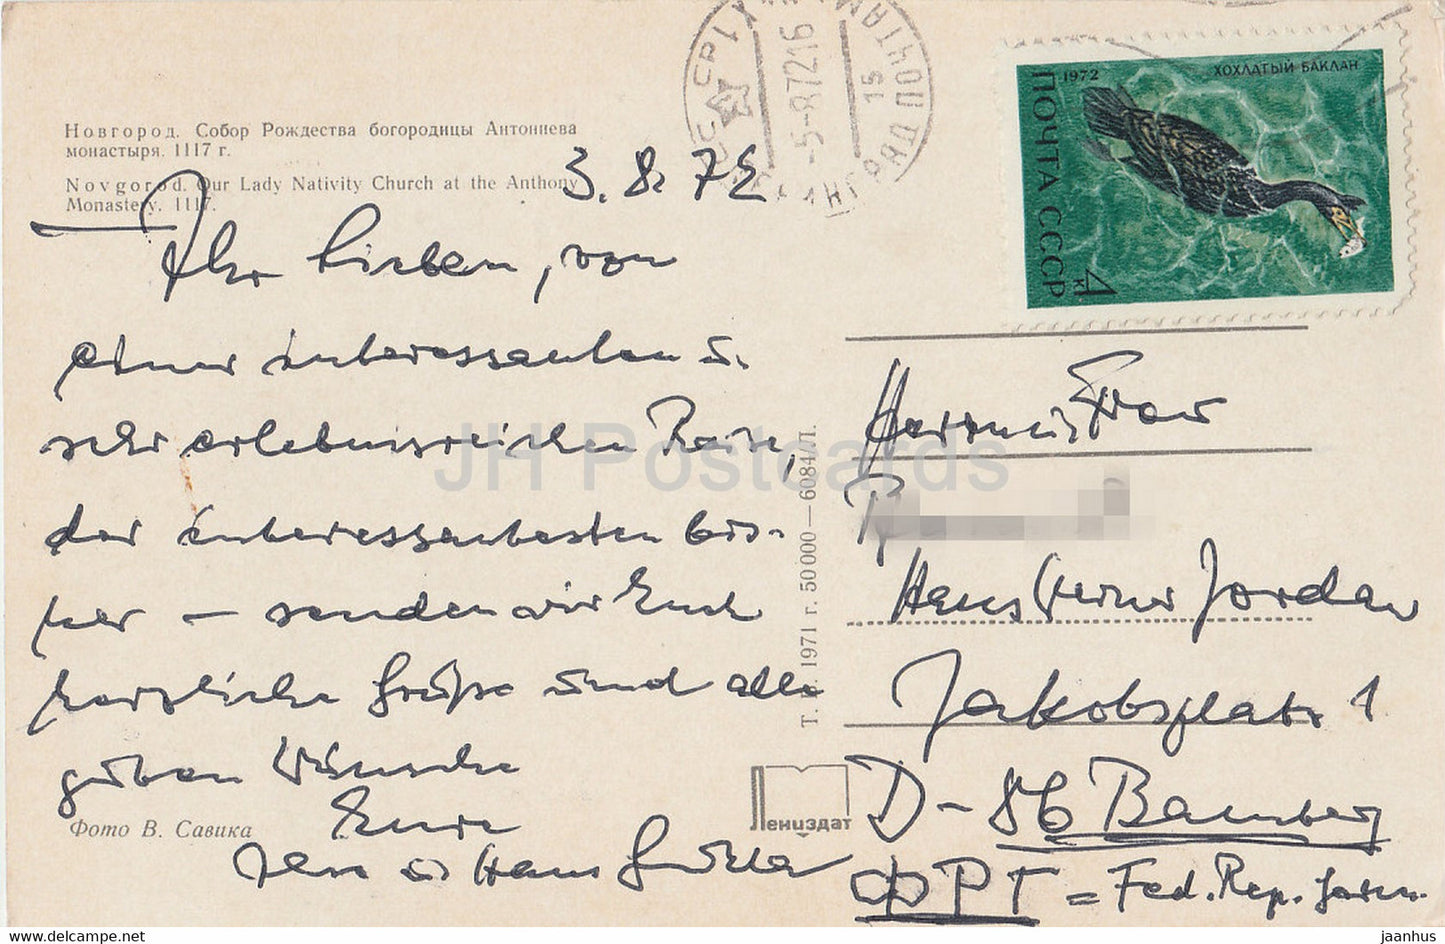 Новгород. Собор Рождества богородицы Антониева
монастыря. 1117 г.
Novgorod. Our Lady Nativity Church at the Anthony
Monastery. 1117.
3. 8. 72
Ihr Lieben, von
einer interessanten u.
sehr erlebnisreichen Reise,
der interessantesten bis-
her – senden wir Euch
herzliche Grüße und alle
guten Wünsche
Eure
u Hans
Фото В. Савика
Т. 1971 г. 50 000—6084/Л.
Лениздат
5-8-72 16
15
1972
ХОХЛАТЫЙ БАКЛАН
ПОЧТА СССР
4 к
Herrn u. Frau
Hans Werner Jordan
Jakobsplatz 1
D-86 Bamberg
ФРГ = Fed. Rep. Germ.
JH Postcards
eu.delcampe.com
jaanhus